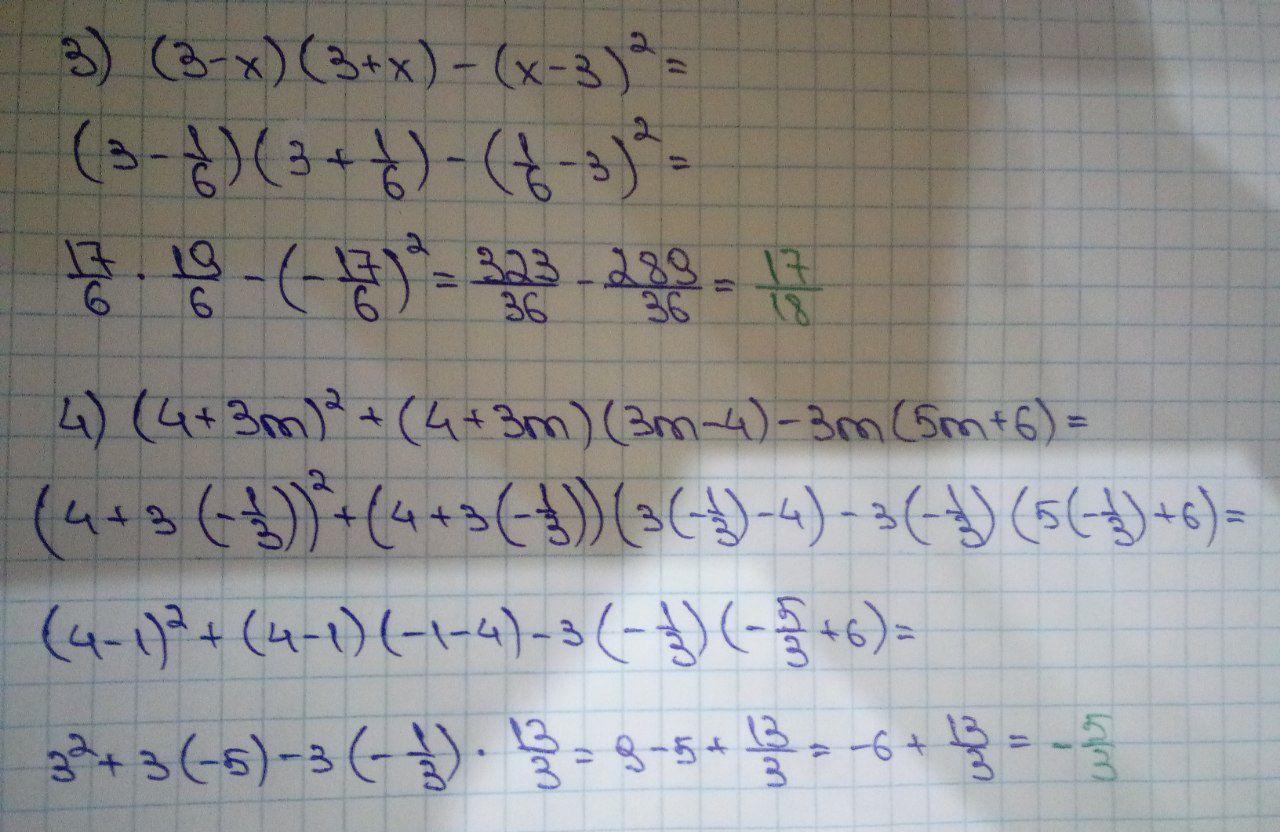 3) (3-x)(3+x)-(x-3)²=
(3-1/6)(3+1/6)-(1/6-3)²=
17/6·19/6-(-17/6)²=323/36-289/36=17/18
4) (4+3m)²+(4+3m)(3m-4)-3m(5m+6)=
(4+3(-1/3))²+(4+3(-1/3))(3(-1/3)-4)-3(-1/3)(5(-1/3)+6)=
(4-1)²+(4-1)(-1-4)-3(-1/3)(-5/3+6)=
3²+3(-5)-3(-1/3)·13/3=9-5+13/3=-6+13/3=-5/3